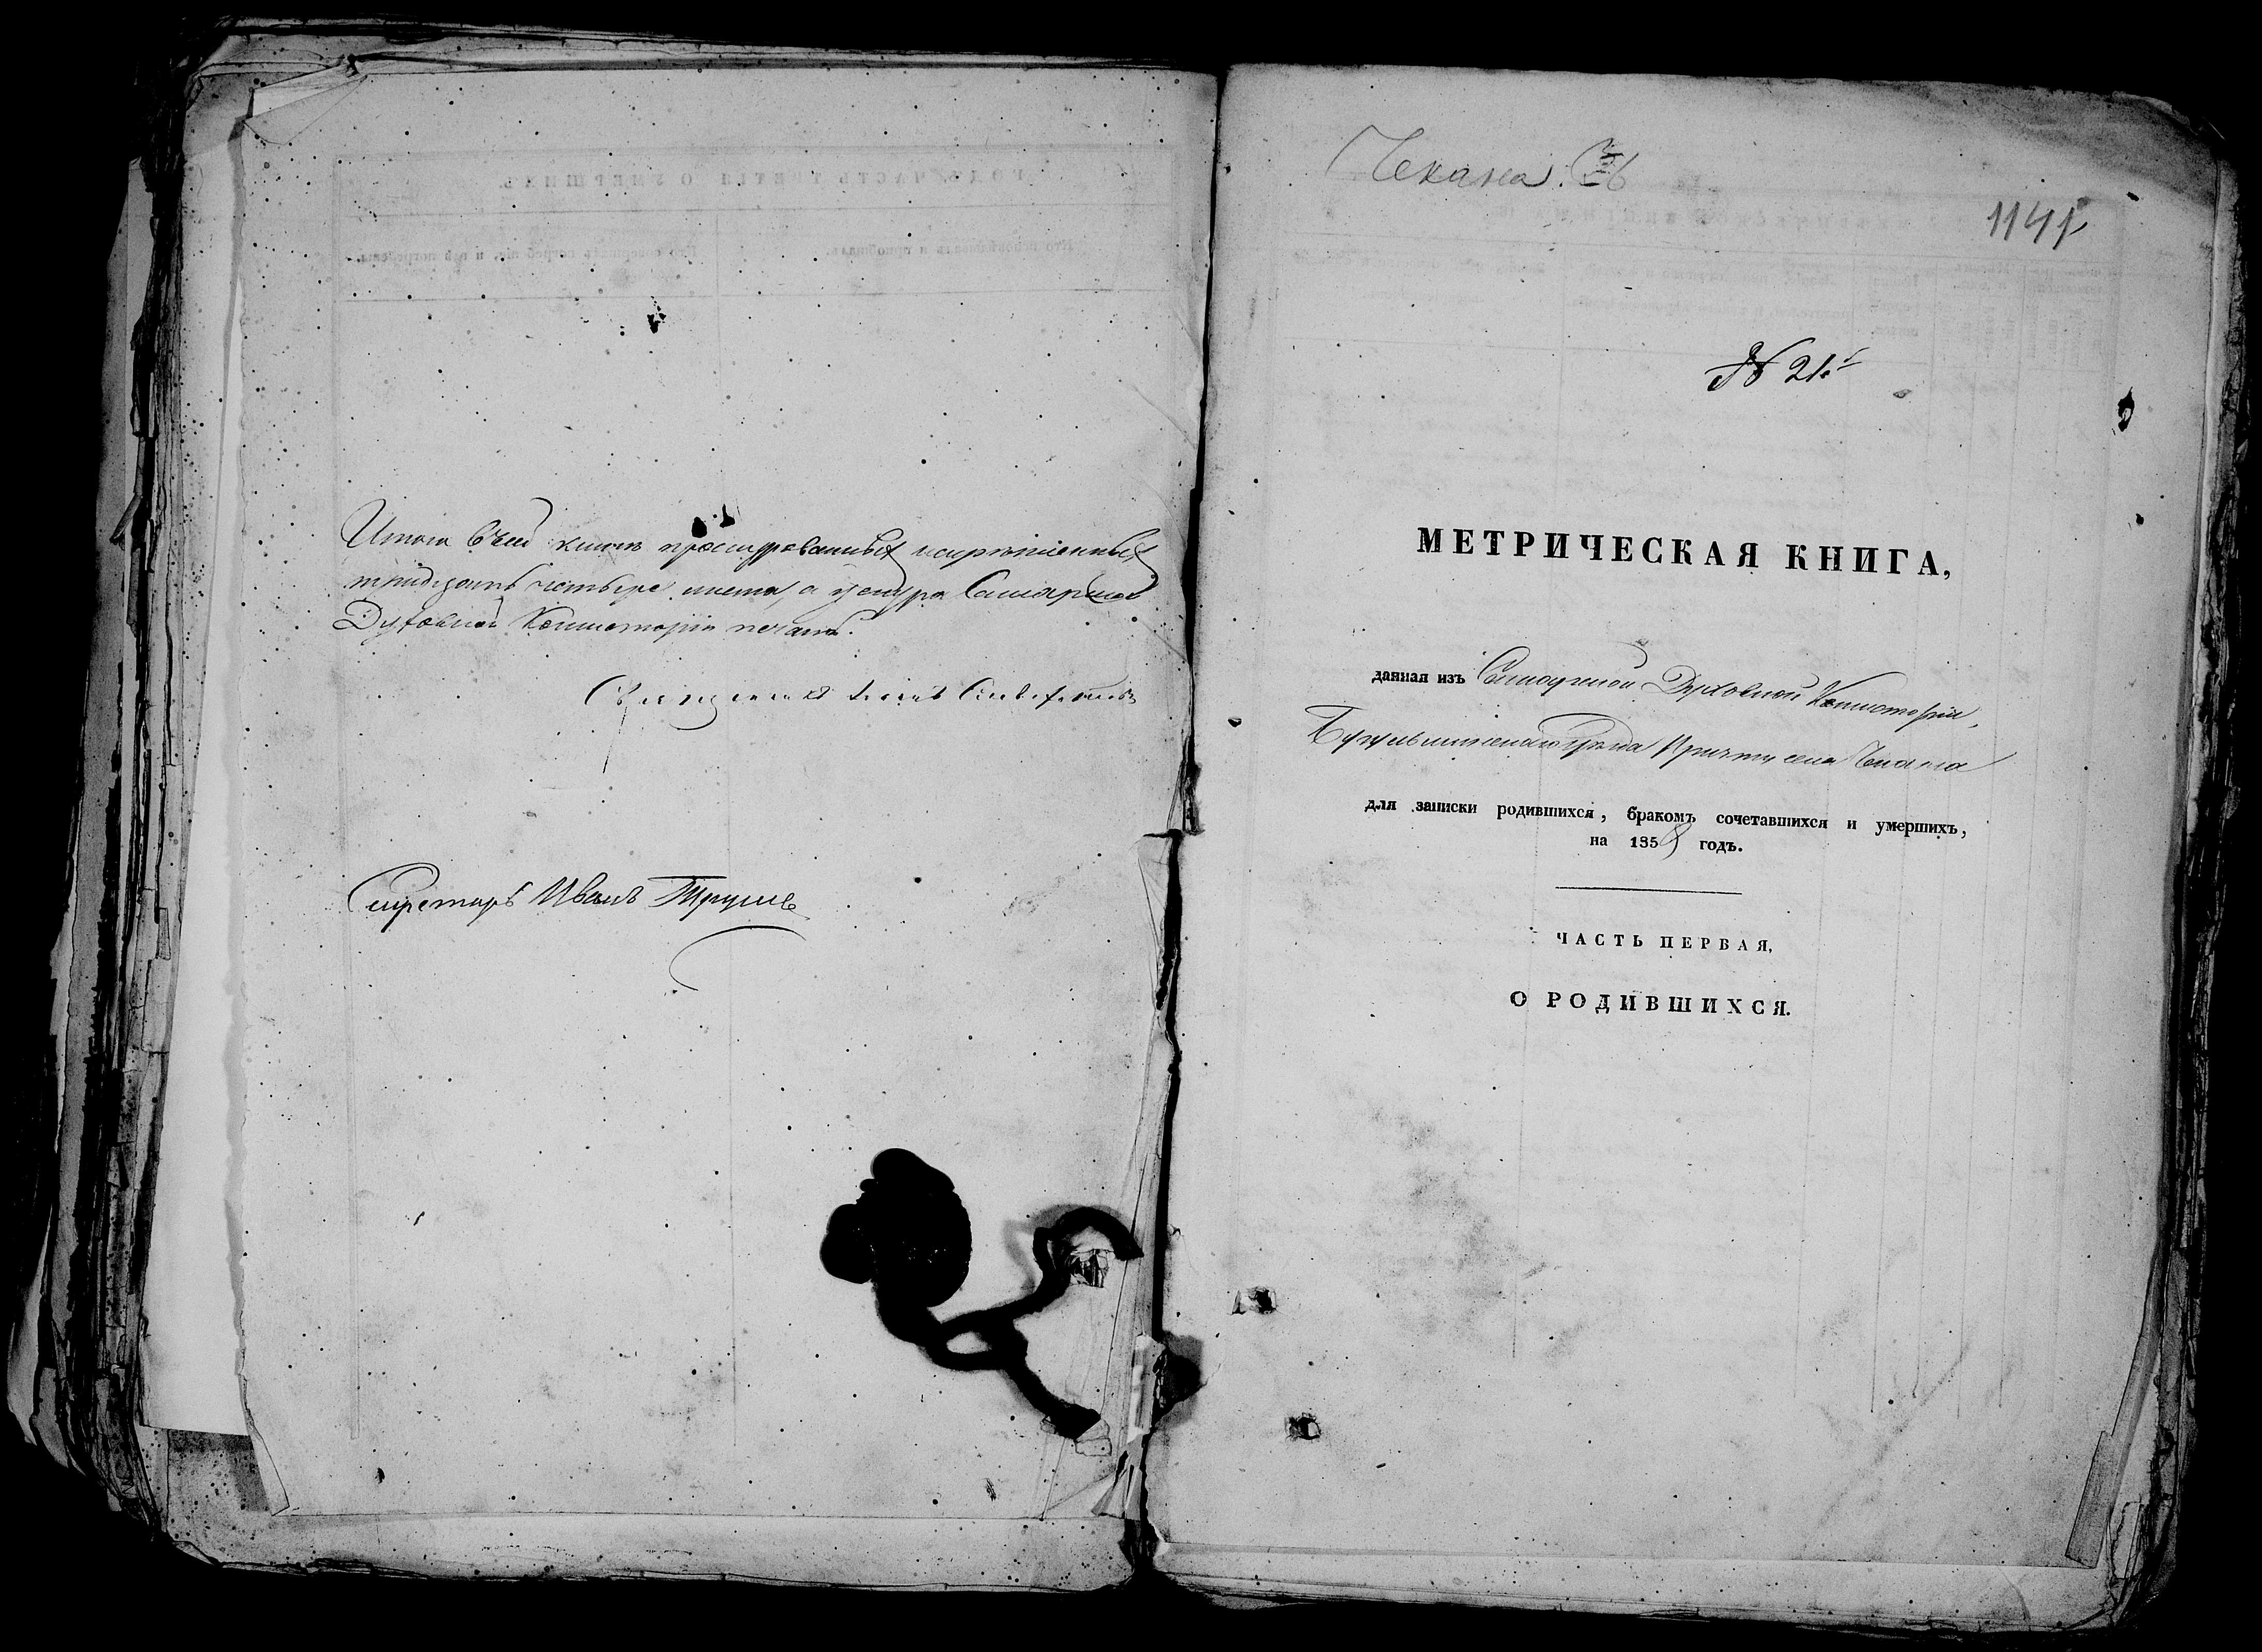 Итого въ сей книгѣ прошнурованныхъ и скрѣпленныхъ
тридцать четыре листа, а у шнура Самарской
Духовной Консисторіи печать.
Секретарь Иванъ
Чекана.
1141
№ 21.
МЕТРИЧЕСКАЯ КНИГА,
данная изъ Самарской Духовной Консисторіи,
Бугульминскаго уѣзда Причту села Чекана
для записки родившихся, бракомъ сочетавшихся и умершихъ,
на 1858 годъ.
ЧАСТЬ ПЕРВАЯ,
О РОДИВШИХСЯ.